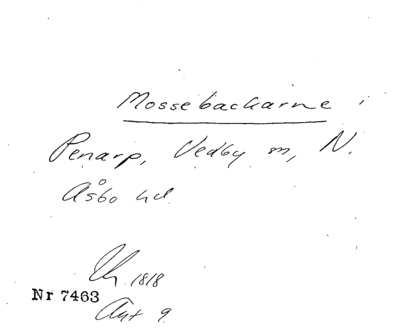 Mossebackarne i
Penarp, Vedby sn, N.
Åsbo hd
1818
Nr 7463
Akt 9